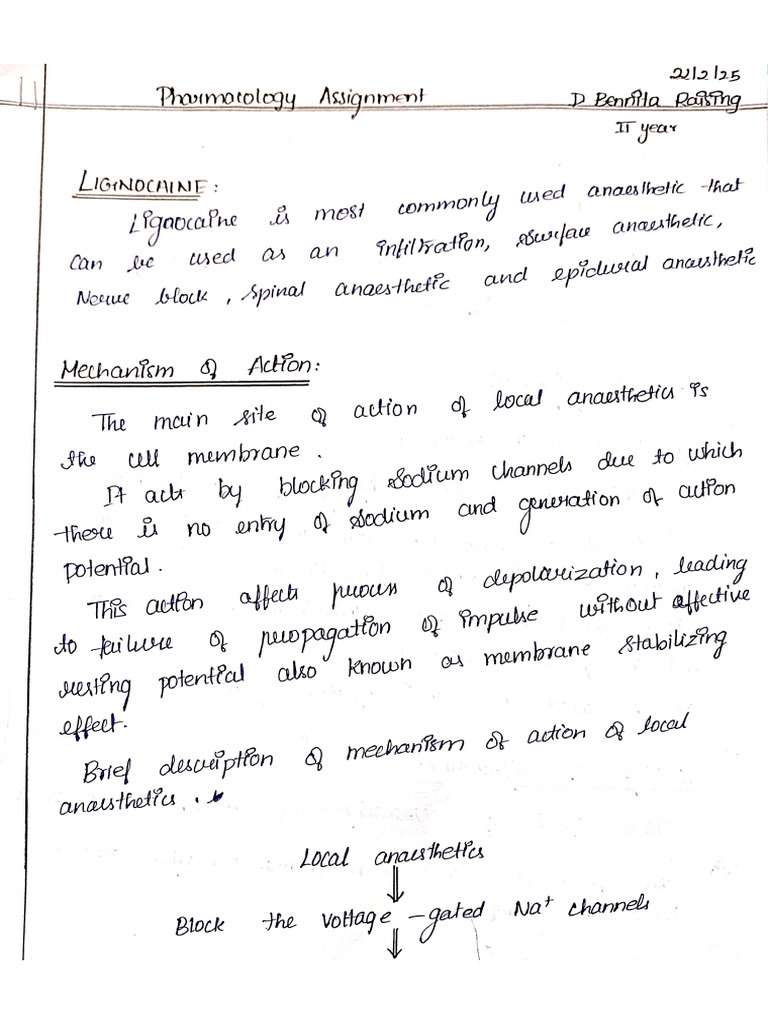 21/2/25
Pharmacology Assignment D Bennita Raising
II year
LIGNOCAINE:
Lignocaine is most commonly used anaesthetic that
can be used as an infiltration, surface anaesthetic,
Nerve block, spinal anaesthetic and epidural anaesthetic
Mechanism of Action:
The main site of action of local anaesthetics is
the cell membrane.
It acts by blocking sodium channels due to which
there is no entry of sodium and generation of action
potential.
This action affects process of depolarization, leading
to failure of propagation of impulse without affective
resting potential also known as membrane stabilizing
effect.
Brief description of mechanism of action of local
anaesthetics.
Local anaesthetics
⇓
Block the voltage-gated Na⁺ channels
⇓